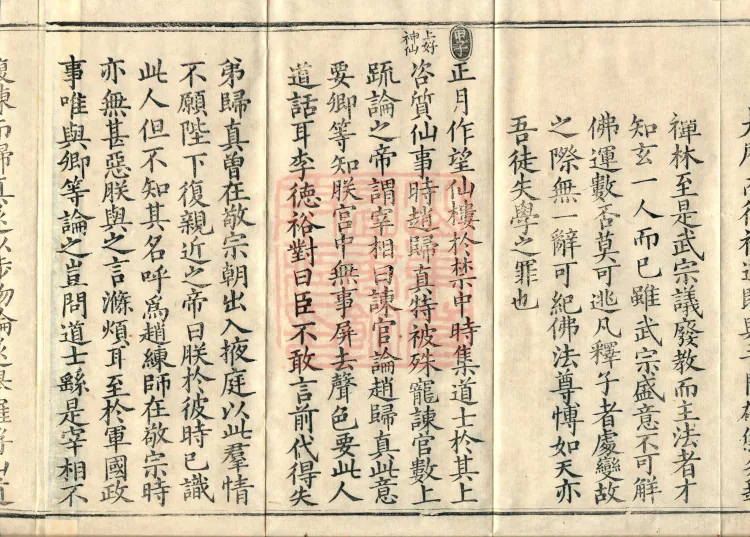 禪林至是武宗議廢教而主法者才
知玄一人而已雖武宗盛意不可解
佛運數否莫可逃凡釋子者處變故
之際無一辭可紀佛法尊博如天亦
吾徒失學之罪也
甲子
上好
神仙
正月作望仙樓於禁中時集道士於其上
咨質仙事時趙歸真特被殊寵諫官數上
疏論之帝謂宰相曰諫官論趙歸真此意
要卿等知朕宮中無事屏去聲色要此人
道話耳李德裕對曰臣不敢言前代得失
第歸真曾在敬宗朝出入掖庭以此羣情
不願陛下復親近之帝曰朕於彼時已識
此人但不知其名呼爲趙練師在敬宗時
亦無甚惡朕與之言滌煩耳至於軍國政
事唯與卿等論之豈問道士繇是宰相不